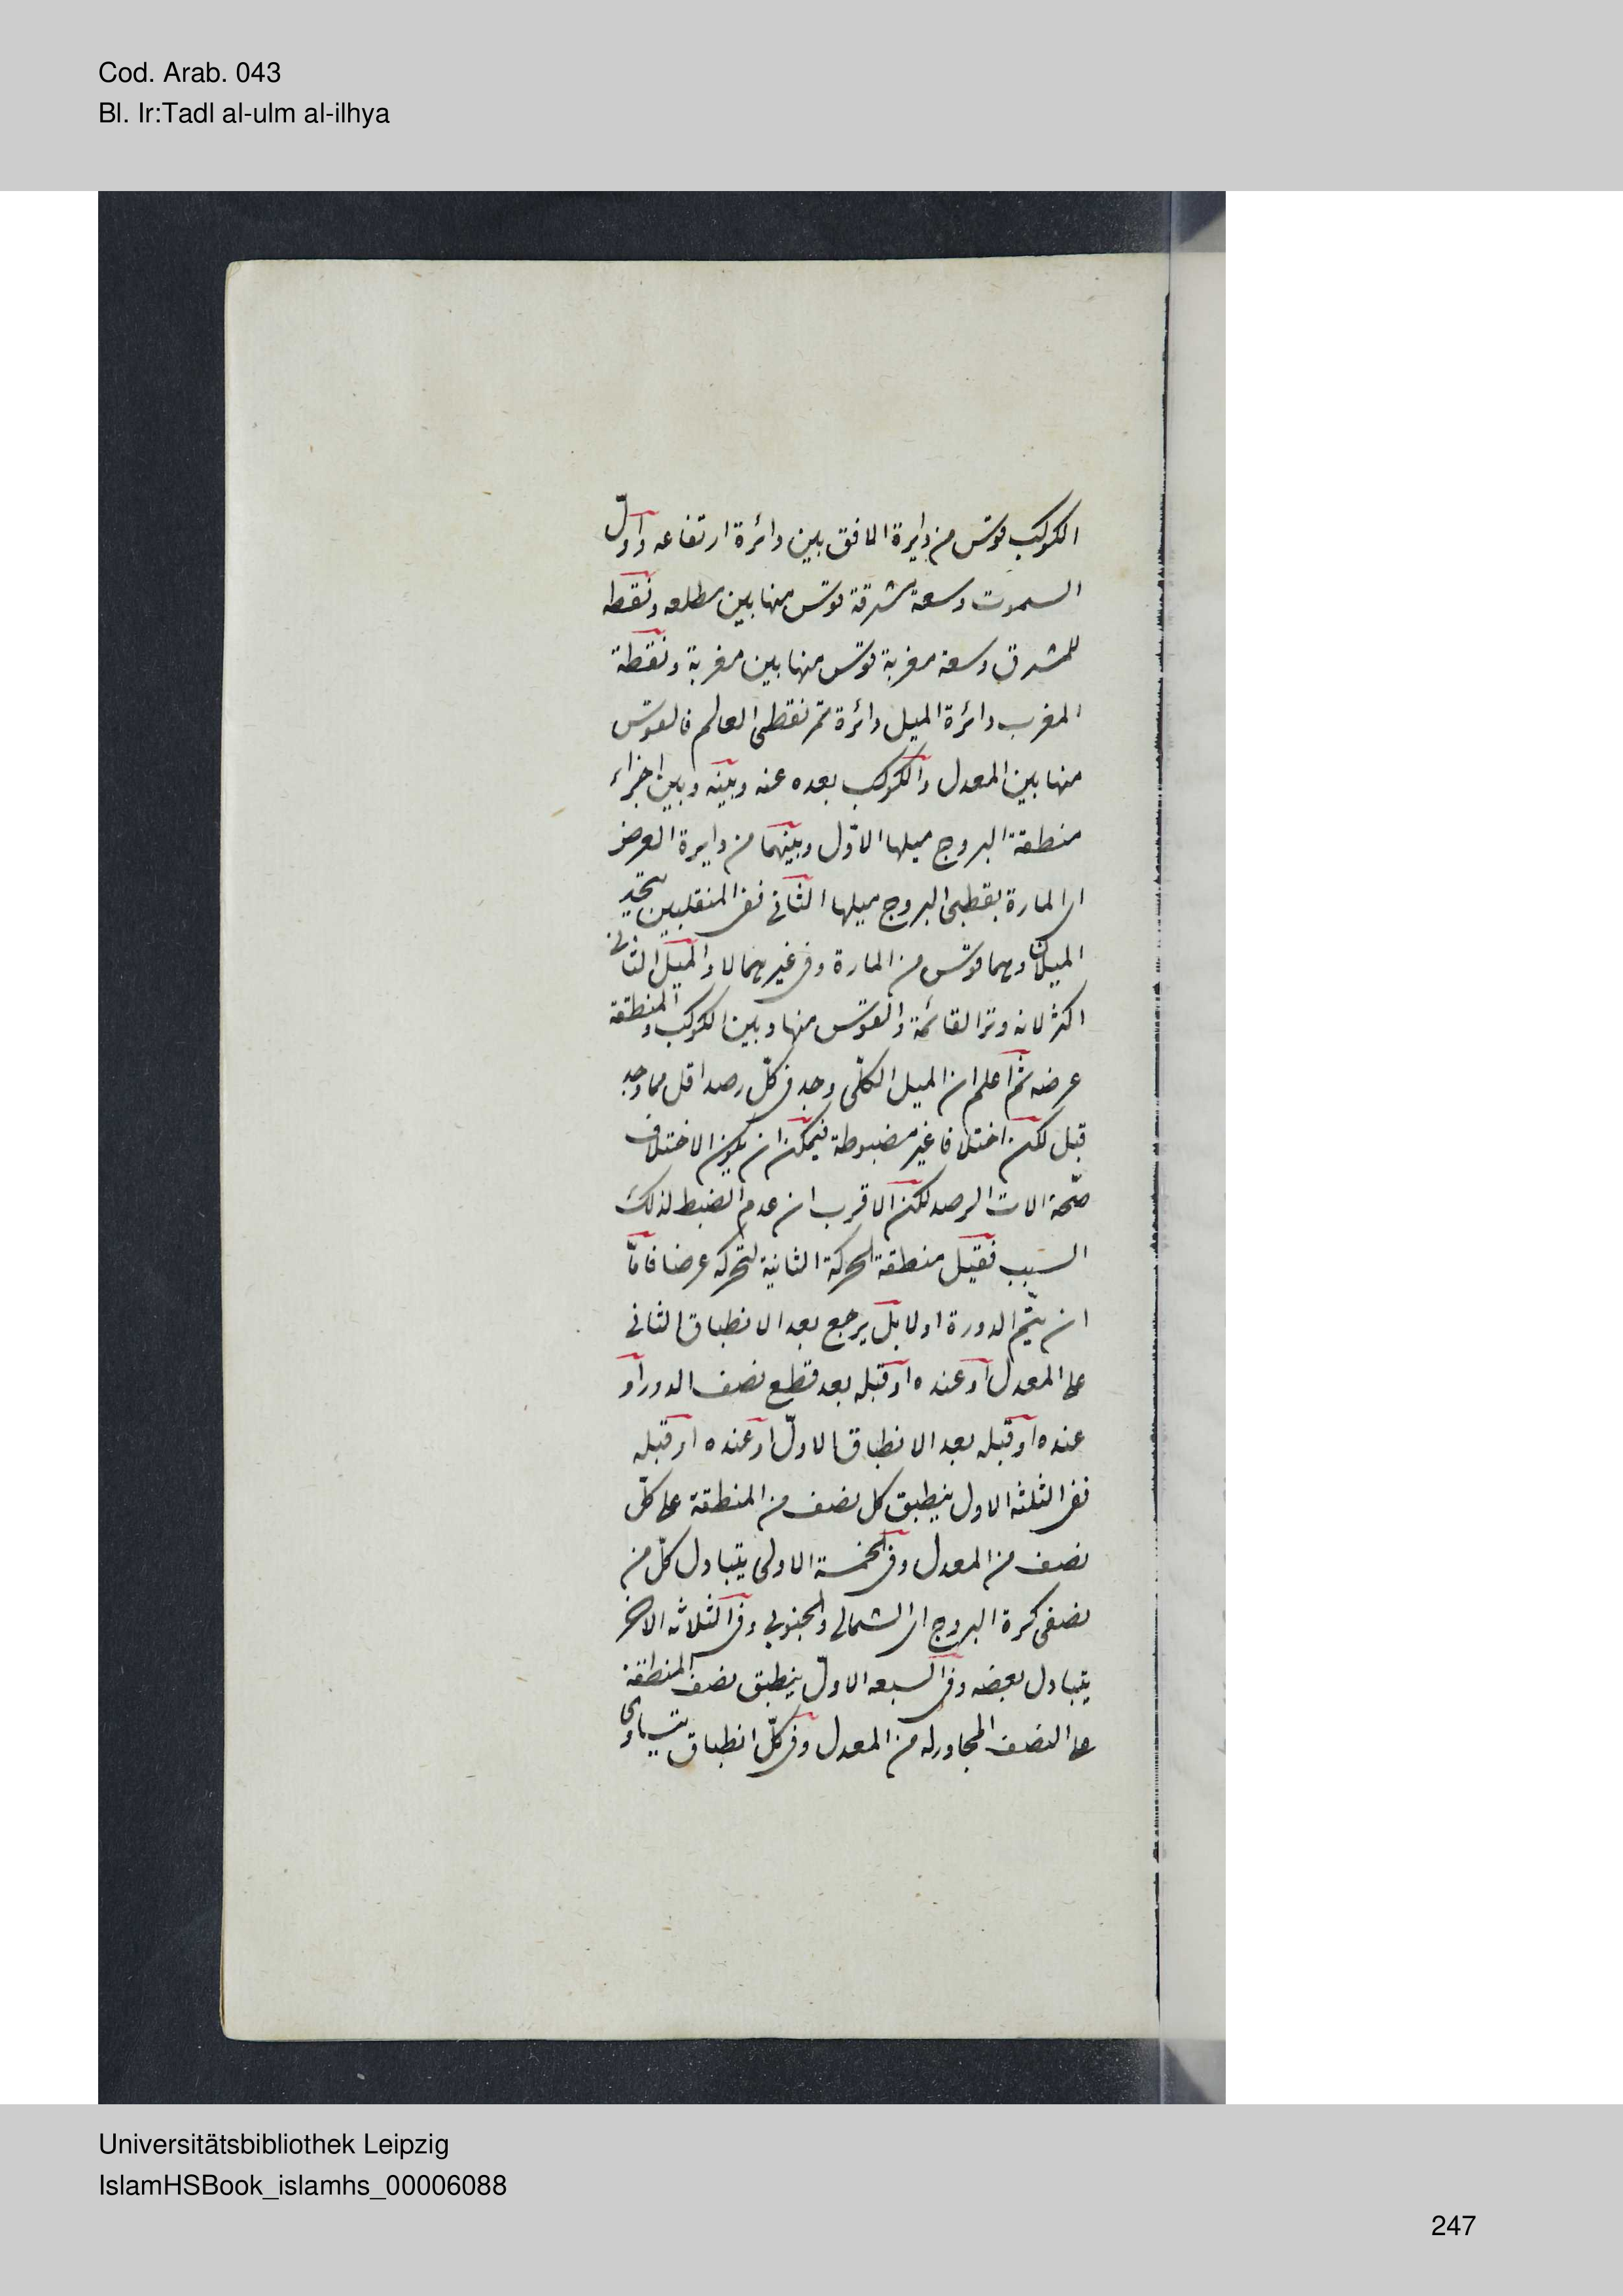 Cod. Arab. 043
Bl. Ir:Tadl al-ulm al-ilhya
الكوكب قوس من دايرة الافق بين دائرة ارتفاعه واول
السموت وسعة مشرقة قوس منها بين مطلعه ونقطه
المشرق وسعة مغربة قوس منها بين مغربة ونقطة
المغرب دائرة الميل دائرة تمر بقطبى العالم فالقوس
منها بين المعدل والكوكب بعده عنه وبينه وبين اجزاء
منطقة البروج ميلها الاوّل وبينهما من دايرة العرض
اى المارة بقطبى البروج ميلها الثانى ففى المنقلبين يتحد
الميلان وهما قوس من المارة وفى غيرهما لا والميل الثانى
اكثر لانه وتر القائمة والقوس منها وبين الكوكب والمنطقة
عرضه ثم اعلم ان الميل الكلّى وجد فى كلّ رصد اقل مما وجد
قبل لكن اختلافا غير مضبوطة فيمكن ان يكون الاختلاف
صحّة الات الرصد لكن الاقرب ان عدم الضبط لذلك
السبب فقيل منطقة الحركة الثانية تتحركه عرضا فامّا
ان يتّم الدورة اولا بل يرجع بعد الانطباق الثانى
على المعدل او عنده او قبله بعد قطع نصف الدور او
عنده او قبله بعد الانطباق الاولّ او عنده او قبله
ففى الثلثه الاول ينطبق كل نصف من المنطقة على كلّ
نصف من المعدل وفى الخمسة الاولى يتبادل كلّ من
نصفى كرة البروج اى الشمالى والجنوبى وفى الثلاثه الاخر
يتبادل بعضه وفى السبعه الاولّ ينطبق نصف المنطقة
على النصف المجاور له من المعدل وفى كلّ انطباق يتساوى
Universitätsbibliothek Leipzig
IslamHSBook_islamhs_00006088
247